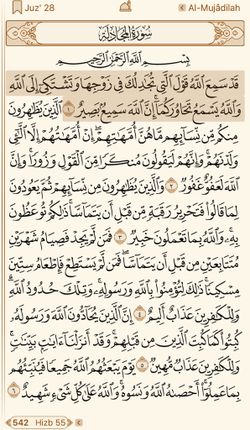 Juz' 28 Al-Mujādilah
سُورَةُ المُجَادلة
بِسْمِ ٱللَّهِ ٱلرَّحْمَٰنِ ٱلرَّحِيمِ
قَدْ سَمِعَ ٱللَّهُ قَوْلَ ٱلَّتِى تُجَٰدِلُكَ فِى زَوْجِهَا وَتَشْتَكِىٓ إِلَى ٱللَّهِ
وَٱللَّهُ يَسْمَعُ تَحَاوُرَكُمَآ ۚ إِنَّ ٱللَّهَ سَمِيعٌۢ بَصِيرٌ ١ ٱلَّذِينَ يُظَٰهِرُونَ
مِنكُم مِّن نِّسَآئِهِم مَّا هُنَّ أُمَّهَٰتِهِمْ ۖ إِنْ أُمَّهَٰتُهُمْ إِلَّا ٱلَّٰٓـِٔى
وَلَدْنَهُمْ ۚ وَإِنَّهُمْ لَيَقُولُونَ مُنكَرًا مِّنَ ٱلْقَوْلِ وَزُورًا ۚ وَإِنَّ
ٱللَّهَ لَعَفُوٌّ غَفُورٌ ٢ وَٱلَّذِينَ يُظَٰهِرُونَ مِن نِّسَآئِهِمْ ثُمَّ يَعُودُونَ
لِمَا قَالُوا۟ فَتَحْرِيرُ رَقَبَةٍ مِّن قَبْلِ أَن يَتَمَآسَّا ۚ ذَٰلِكُمْ تُوعَظُونَ
بِهِۦ ۚ وَٱللَّهُ بِمَا تَعْمَلُونَ خَبِيرٌ ٣ فَمَن لَّمْ يَجِدْ فَصِيَامُ شَهْرَيْنِ
مُتَتَابِعَيْنِ مِن قَبْلِ أَن يَتَمَآسَّا ۖ فَمَن لَّمْ يَسْتَطِعْ فَإِطْعَامُ سِتِّينَ
مِسْكِينًا ۚ ذَٰلِكَ لِتُؤْمِنُوا۟ بِٱللَّهِ وَرَسُولِهِۦ ۚ وَتِلْكَ حُدُودُ ٱللَّهِ ۗ
وَلِلْكَٰفِرِينَ عَذَابٌ أَلِيمٌ ٤ إِنَّ ٱلَّذِينَ يُحَآدُّونَ ٱللَّهَ وَرَسُولَهُۥ
كُبِتُوا۟ كَمَا كُبِتَ ٱلَّذِينَ مِن قَبْلِهِمْ ۚ وَقَدْ أَنزَلْنَآ ءَايَٰتٍۭ بَيِّنَٰتٍ ۚ
وَلِلْكَٰفِرِينَ عَذَابٌ مُّهِينٌ ٥ يَوْمَ يَبْعَثُهُمُ ٱللَّهُ جَمِيعًا فَيُنَبِّئُهُم
بِمَا عَمِلُوٓا۟ ۚ أَحْصَىٰهُ ٱللَّهُ وَنَسُوهُ ۚ وَٱللَّهُ عَلَىٰ كُلِّ شَىْءٍ شَهِيدٌ ٦
542 Hizb 55